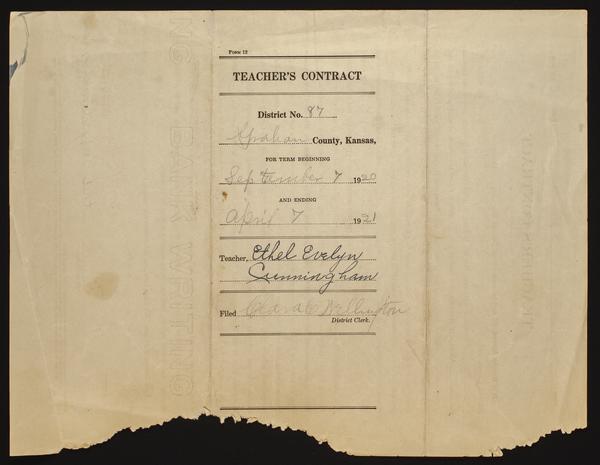 Form 12
TEACHER'S CONTRACT
District No. 87
Graham County, Kansas,
FOR TERM BEGINNING
September 7 1920
AND ENDING
April 7 1921
Teacher, Ethel Evelyn
Cunningham
Filed Wellington
District Clerk.